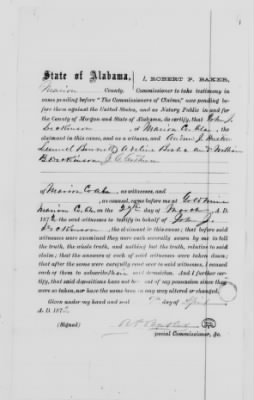 State of Alabama,
Marion County. I, ROBERT P. BAKER,
Commissioner to take testimony in
cases pending before "The Commissioners of Claims," now pending be-
fore them against the United States, and as Notary Public in and for
the County of Morgan and State of Alabama, do certify, that John J.
Dickinson of Marion Co. Ala, the
claimant in this cause, and as a witness, and J.
Lemuel Adeline and William
B. Dickinson J. C.
of Marion Co Ala as witnesses, and
as counsel, came before me at Gold Mine
Marion Co. on the 27th day of March A. D.
187 the said witnesses to testify in behalf of John J.
Dickinson, the claimant in this cause; that before said
witnesses were examined they were each severally sworn by me to tell
the truth, the whole truth, and nothing but the truth, relative to said
cause; that the answers of each of said witnesses were taken down;
that after the same were carefully read over to said witnesses, I caused
each of them to subscribe their said deposition. And I further certify,
that said depositions have not been out of my possession since they
were so taken, nor have the same been in any way altered or changed.
Given under my hand and seal day of April
A. D. 187
(Signed)
Special Commissioner, &c.